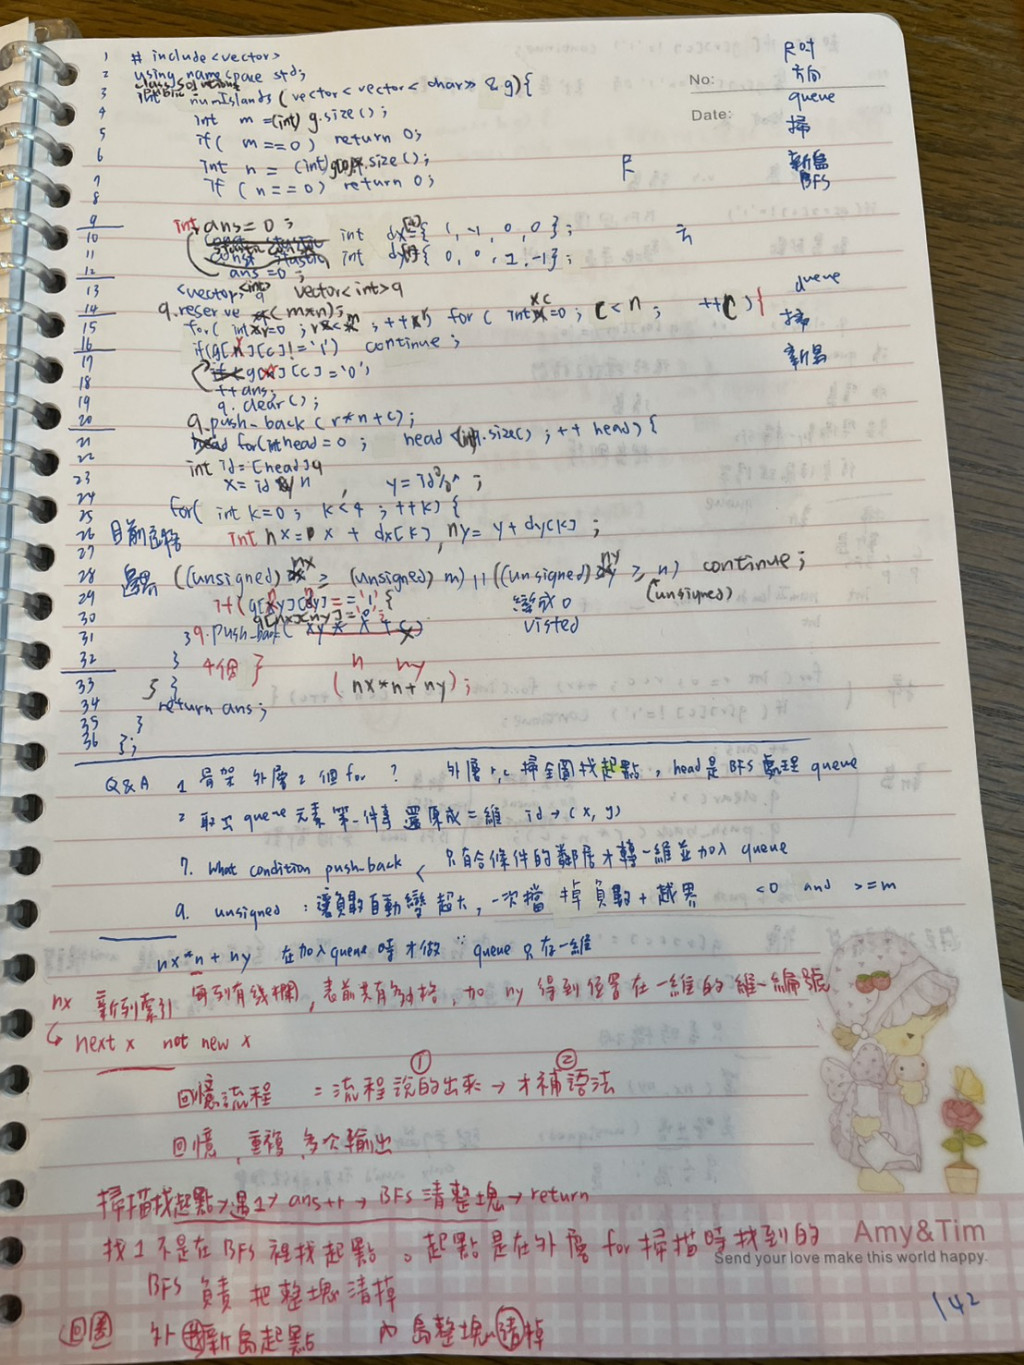 No:
Date:
尺寸
方向
queue
掃
新島
BFS
1 # include <vector>
2 using namespace std;
class Solution
public
3 int numIslands (vector<vector<char>> & g){
4 int m = (int) g.size();
5 if( m == 0) return 0;
6 int n = (int) g[0].size();
7 if (n == 0) return 0;
8
9 int ans = 0;
10 int dx[4]={ 1, -1, 0, 0};
11 int dy[4]={ 0, 0, 1, -1};
12 ans = 0;
13 <vector> <int> q vector<int> q
queue
14 q.reserve (m*n);
15 for( int r=0; r<m; ++r) for( int c=0; c<n; ++c){
掃
16 if(g[r][c]!='1') continue;
新島
17 g[r][c]='0';
18 ++ans;
19 q.clear();
20 q.push_back(r*n+c);
21 for(int head=0; head<(int)q.size(); ++head){
22 int id=[head]q
23 x= id / n, y=id%n;
24 for( int k=0; k<4; ++k){
25
26 目前 int nx= x + dx[k], ny= y+dy[k];
27
28 邊界 ((unsigned) nx ≥ (unsigned) m) || ((unsigned) ny ≥ n) continue;
(unsigned)
29 if(g[x][y]=='1'{ 變成0
30 g[nx][ny]='0'; visted
31 } q.push_back(
32 } 4個}
n ny
33 } } (nx*n+ny);
34 return ans;
35 }
36 };
Q&A 1 骨架 外層2個for ? 外層r,c 掃全圖找起點, head是BFS處理 queue
2 取出 queue 元素第一件事 還原成二維 id→(x, y)
7. What condition push_back < 只有合條件的鄰居才轉一維並加入 queue
9. unsigned : 讓負數自動變超大, 一次擋掉負數+越界 <0 and >=m
nx*n + ny 在加入queue時才做 ∵ queue只存一維
nx 新列索引 每列有幾欄, 表前共有多少格, 加 ny 得到位置在一維的唯一編號
next x not new x
① ②
回憶流程 = 流程說的出來 → 才補語法
回憶, 重複, 多次輸出
掃描找起點→遇1→ans++→BFS清整塊→return
找1不是在BFS裡找起點。起點是在外層for掃描時找到的
BFS 負責把整塊清掉
回圈 外 找新島起點 內 島整塊清掉
Amy&Tim
Send your love make this world happy.
142